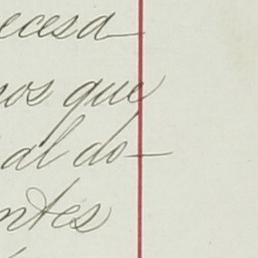 ecesa-
nos que
al do-
ntes